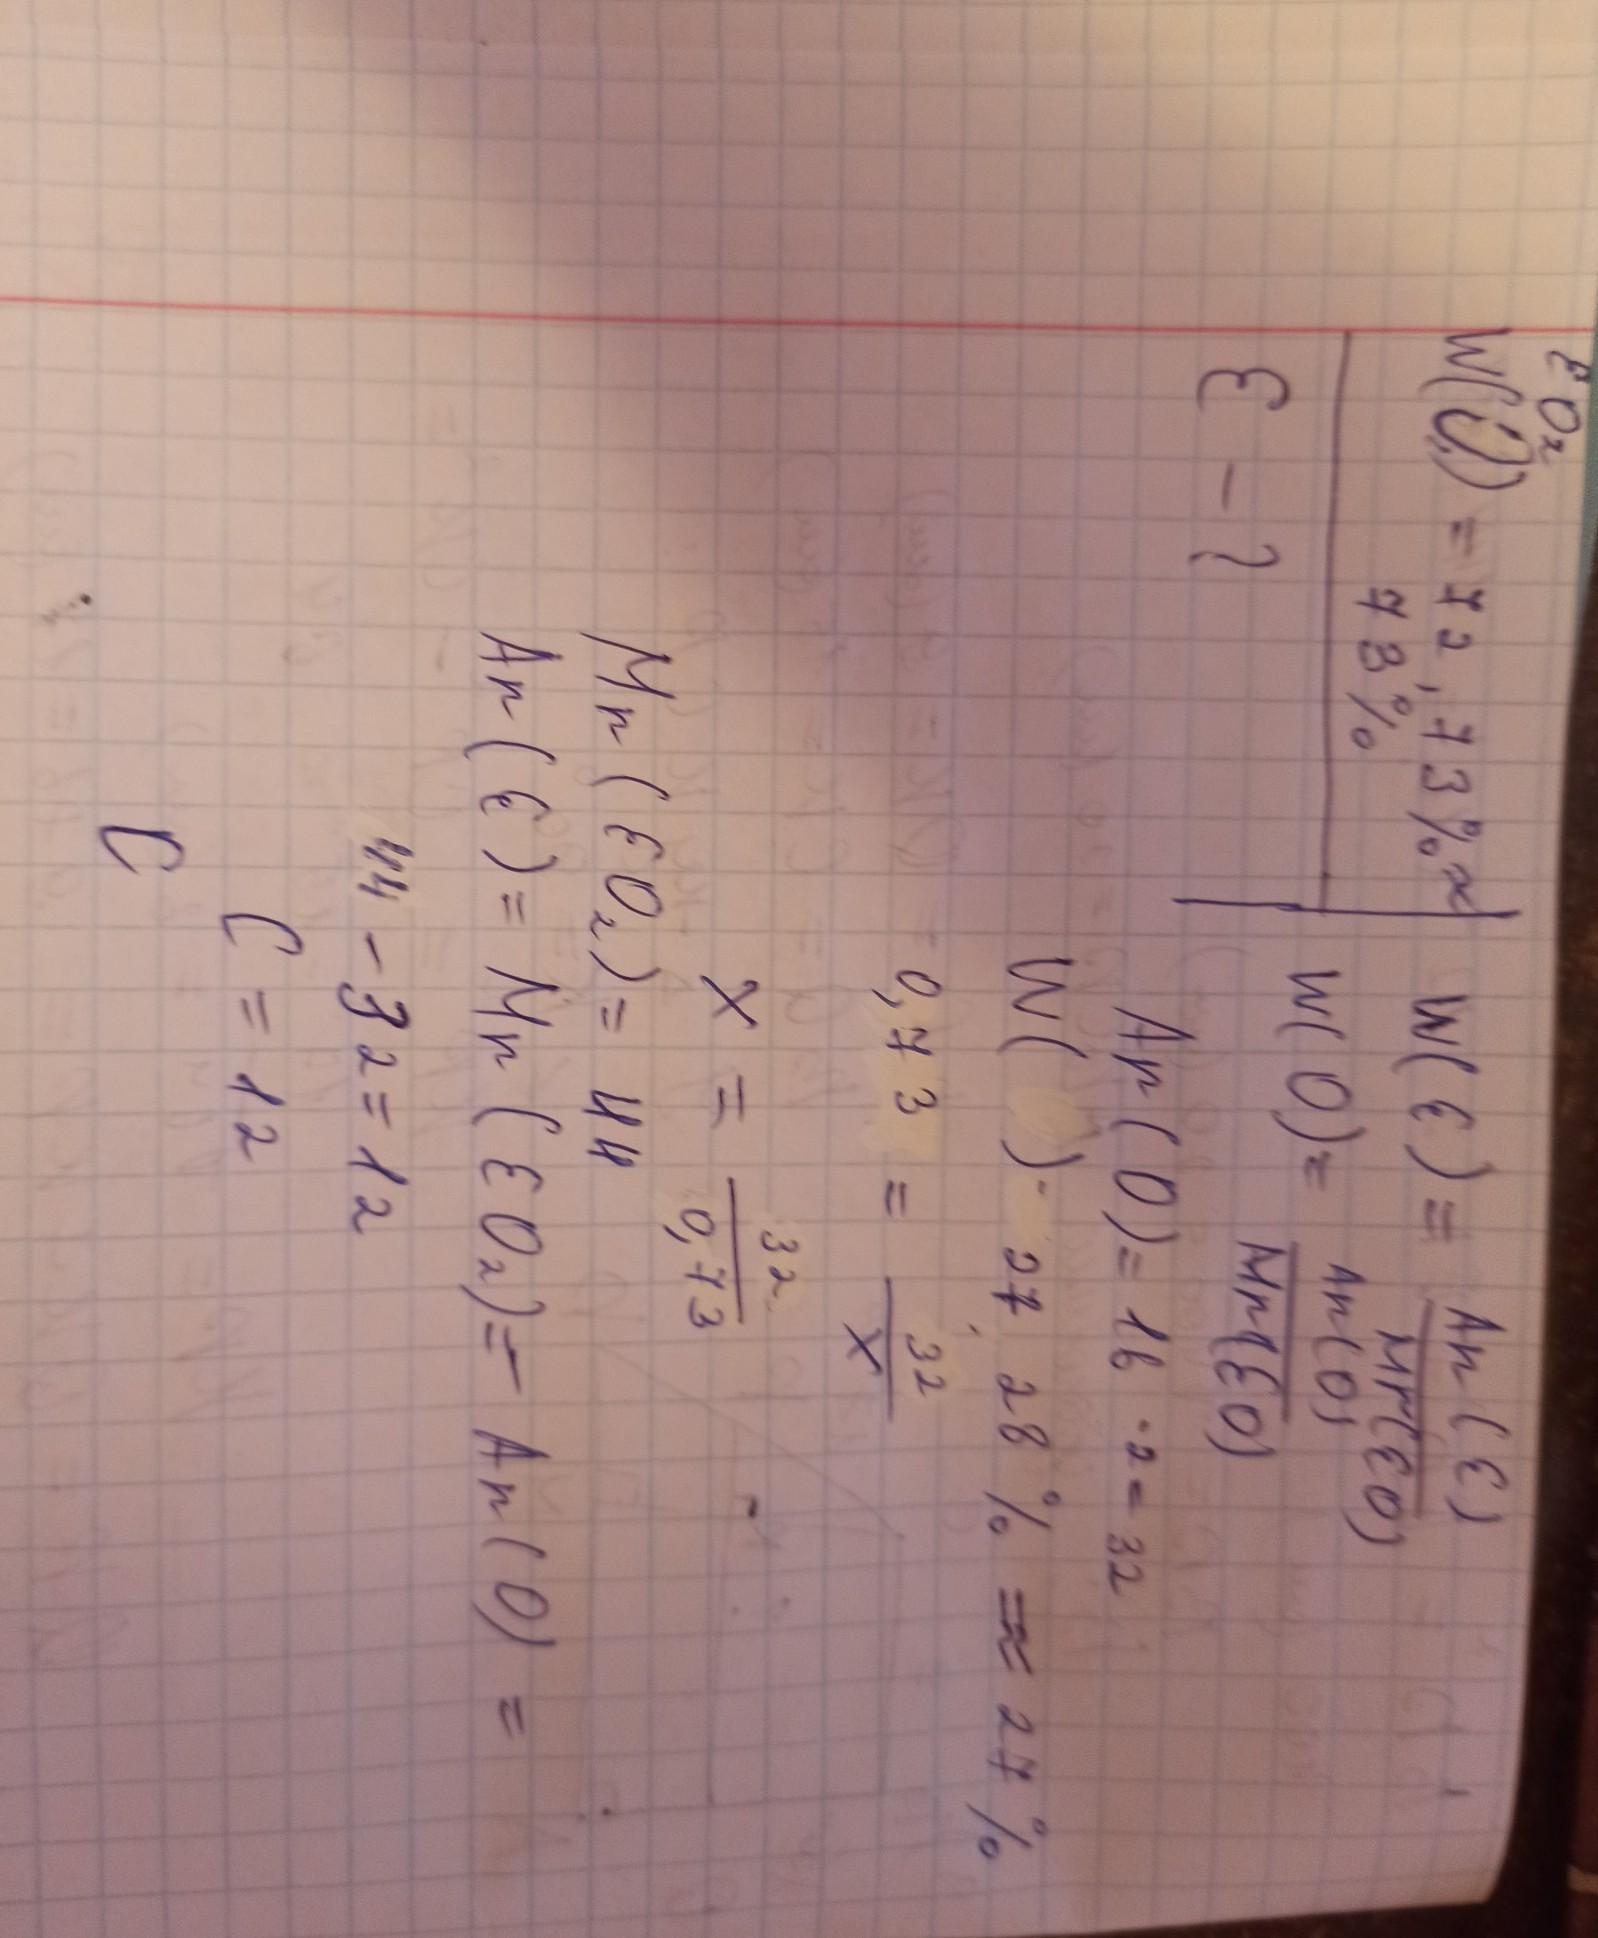 EO₂
W(O) = 72,73% ≈
73%
E - ?
W(E) = Ar(E)
Mr(EO)
W(O) = Ar(O)
Mr(EO)
Ar(O) = 16 · 2 = 32
W( ) 27 28 % ≈ 27 %
0,73 = 32
x
x = 32
0,73
Mr(EO₂) = 44
Ar(E) = Mr(EO₂) = - Ar(O) =
44 - 32 = 12
C = 12
C